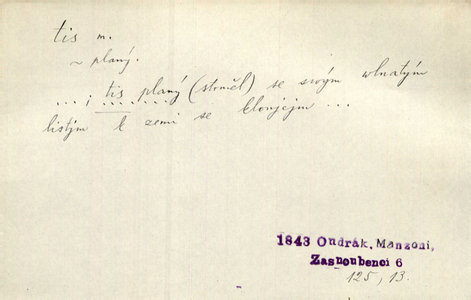 tis m.
~ planý.
... ; tis planý (stoměl) se svým vlnatým
listým k zemi se klonjcjm ...
1843 Ondrák, Manzoni,
Zasnoubenci 6
125, 13.